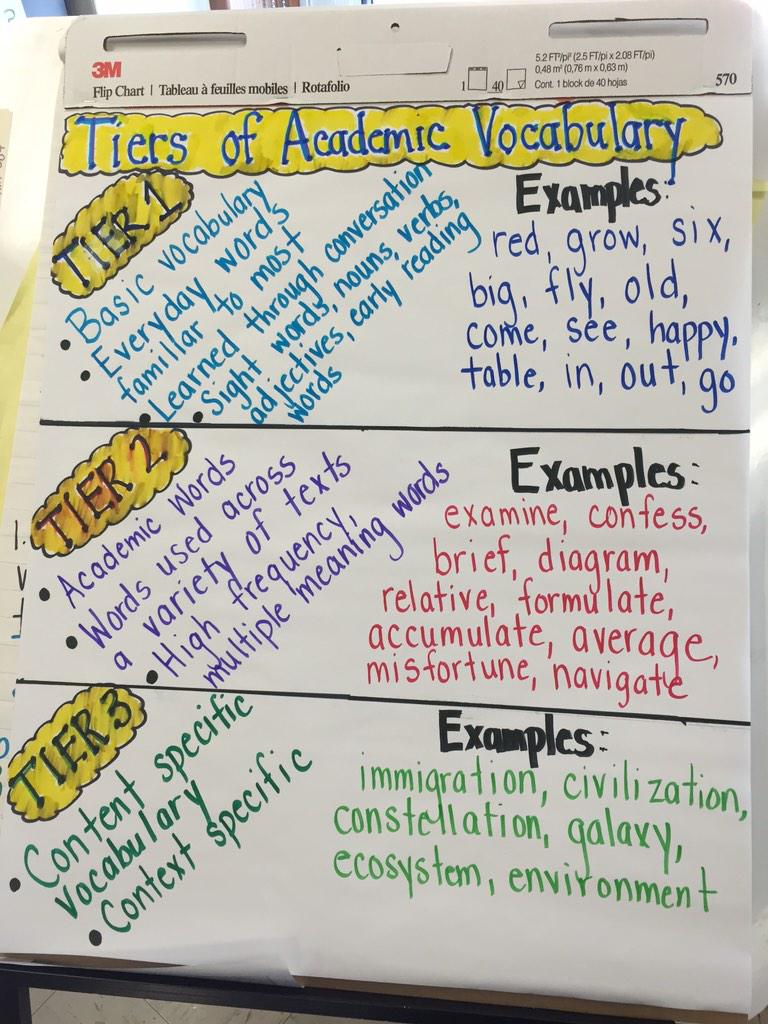 3M
Flip Chart | Tableau à feuilles mobiles | Rotafolio
1 40
5.2 FT²/pi² (2.5 FT/pi x 2.08 FT/pi)
0,48 m² (0,76 m x 0,63 m)
Cont. 1 block de 40 hojas
570
Tiers of Academic Vocabulary
TIER 1
• Basic vocabulary
• Everyday words
familiar to most
• Learned through conversation
• Sight words, nouns, verbs,
adjectives, early reading
words
Examples:
red, grow, six,
big, fly, old,
come, see, happy,
table, in, out, go
TIER 2
• Academic Words
• Words used across
a variety of texts
• High frequency,
multiple meaning words
Examples:
examine, confess,
brief, diagram,
relative, formulate,
accumulate, average,
misfortune, navigate
TIER 3
• Content specific
vocabulary
• Context specific
Examples:
immigration, civilization,
constellation, galaxy,
ecosystem, environment